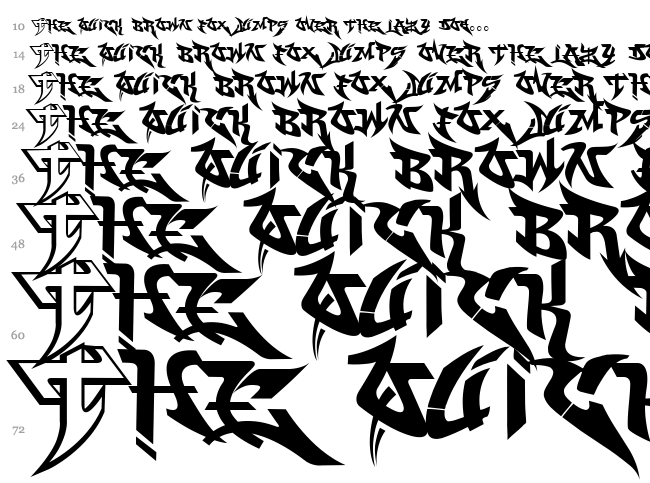 10 THE QUICK BROWN FOX JUMPS OVER THE LAZY DOG...
14 THE QUICK BROWN FOX JUMPS OVER THE LAZY DO
18 THE QUICK BROWN FOX JUMPS OVER TH
24 THE QUICK BROWN FOX JUMPS
36 THE QUICK BROWN
48 THE QUICK BRO
60 THE QUICK
72 THE QUICK